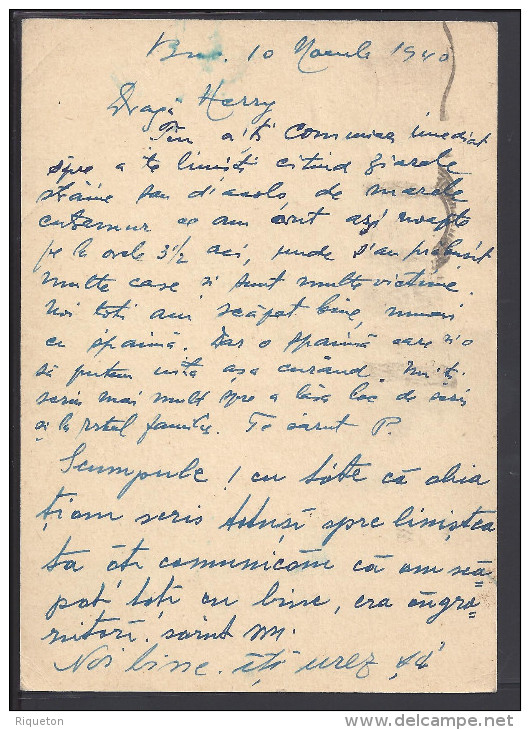 Buc. 10 Noemb 1940
Dragă Herry
Țin a-ți comunica imediat
spre a te liniști citind ziarele
străine sau d'acolo, de marele
cutremur ce am avut azi noapte
pe la orele 3 1/2 aci, unde s'au prăbușit
multe case și sunt multe victime.
Noi toți am scăpat bine, numai
cu spaimă. Dar o spaimă care n'o
să putem uita așa curând. Nu-ți
scriu mai mult spre a lăsa loc de scris
și la restul familiei. Te sărut P.
Scumpule! cu toate că abia
ți-am scris totuși spre liniștea
ta îți comunicăm că am scă=
pat toți cu bine, era îngro=
zitor. sărut
Noi bine. îți urez
Riqueton
www.delcampe.net